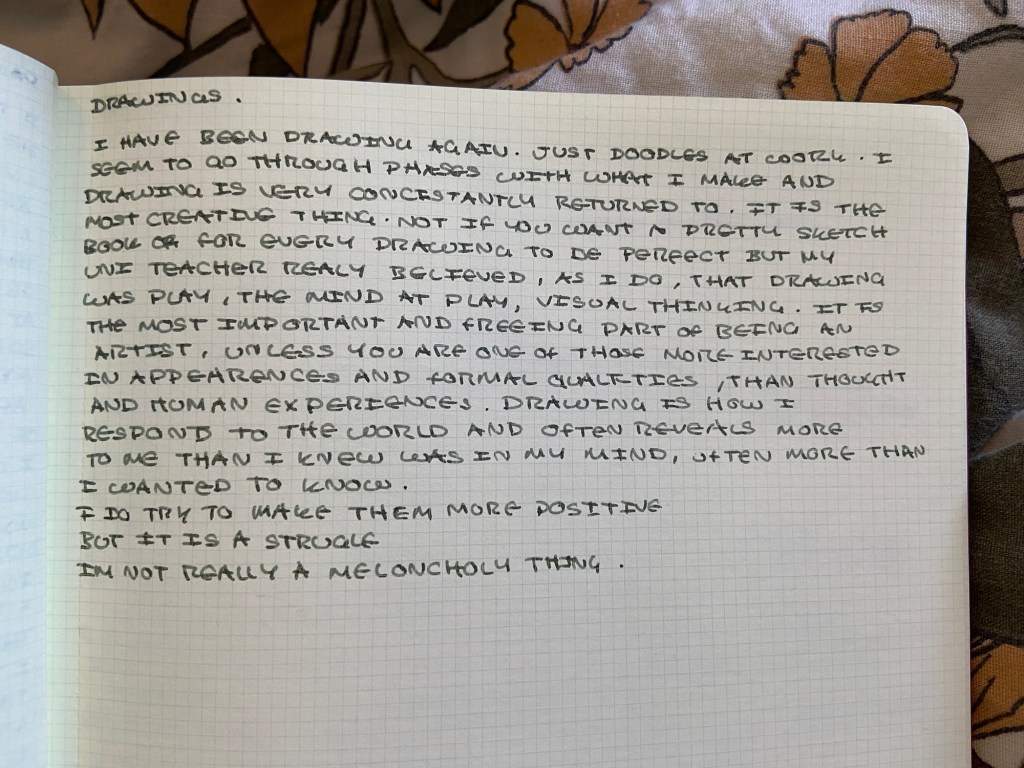 DRAWINGS.
I HAVE BEEN DRAWING AGAIN. JUST DOODLES AT WORK. I
SEEM TO GO THROUGH PHASES WITH WHAT I MAKE AND
DRAWING IS VERY CONCISTANTLY RETURNED TO. IT IS THE
MOST CREATIVE THING. NOT IF YOU WANT A PRETTY SKETCH
BOOK OR FOR EVERY DRAWING TO BE PERFECT BUT MY
UNI TEACHER REALY BELIEVED, AS I DO, THAT DRAWING
WAS PLAY, THE MIND AT PLAY, VISUAL THINKING. IT IS
THE MOST IMPORTANT AND FREEING PART OF BEING AN
ARTIST, UNLESS YOU ARE ONE OF THOSE MORE INTERESTED
IN APPEARENCES AND FORMAL QUALITIES, THAN THOUGHT
AND HUMAN EXPERIENCES. DRAWING IS HOW I
RESPOND TO THE WORLD AND OFTEN REVEALS MORE
TO ME THAN I KNEW WAS IN MY MIND, OFTEN MORE THAN
I WANTED TO KNOW.
I DO TRY TO MAKE THEM MORE POSITIVE
BUT IT IS A STRUGLE
IM NOT REALLY A MELONCHOLY THING.